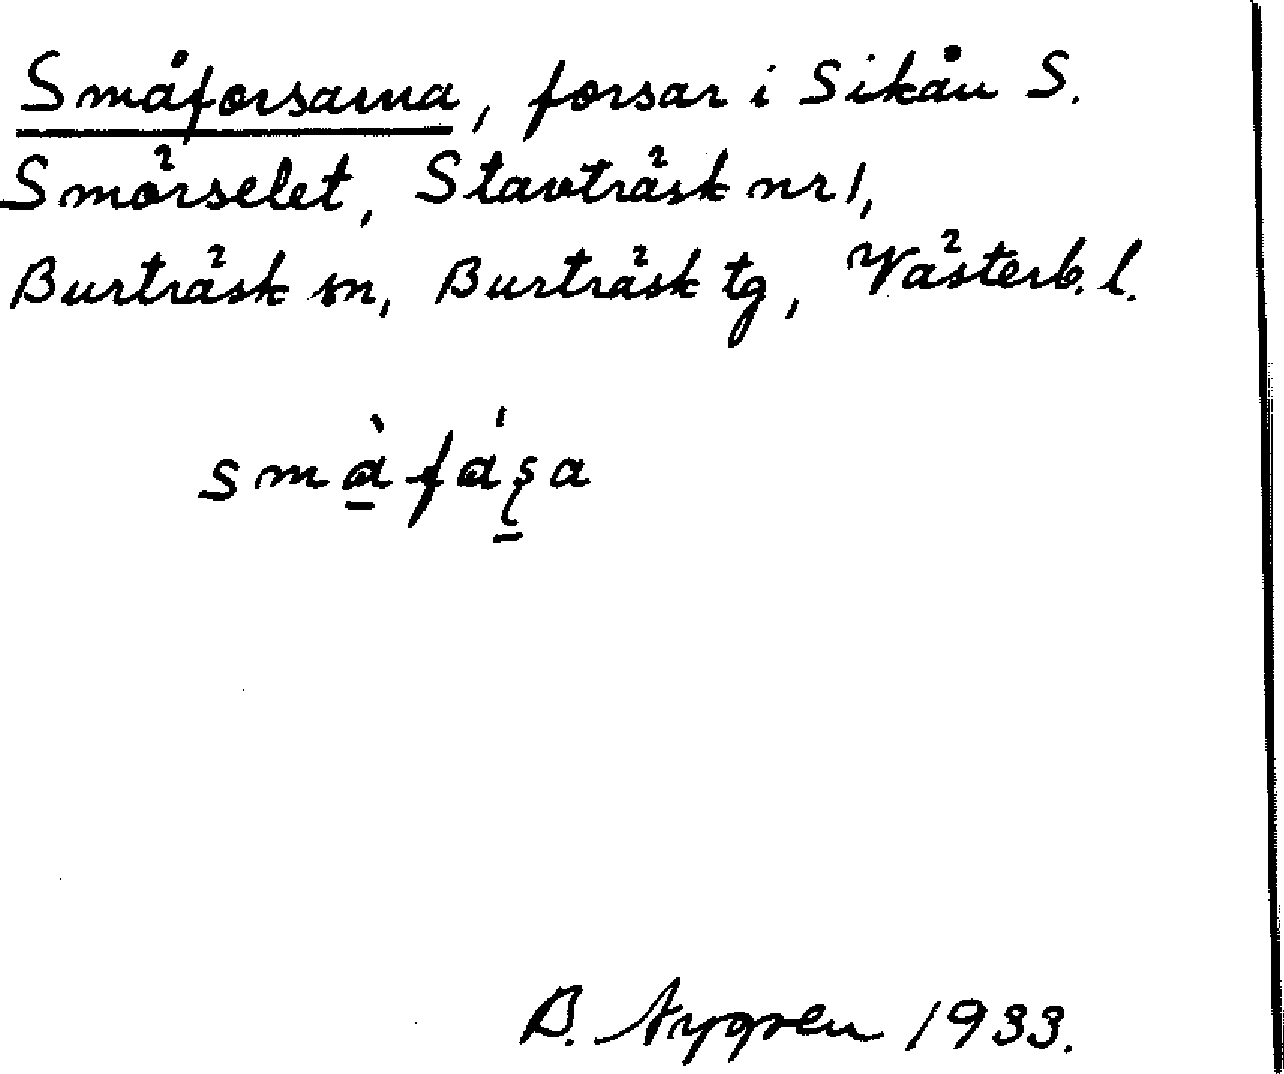 Småforsarna, forsar i Sikån S.
Smörselet, Stavträsk nr 1,
Burträsk sn, Burträsk tg, Västerb. l.
smàfáʂa
B. Nygren 1933.